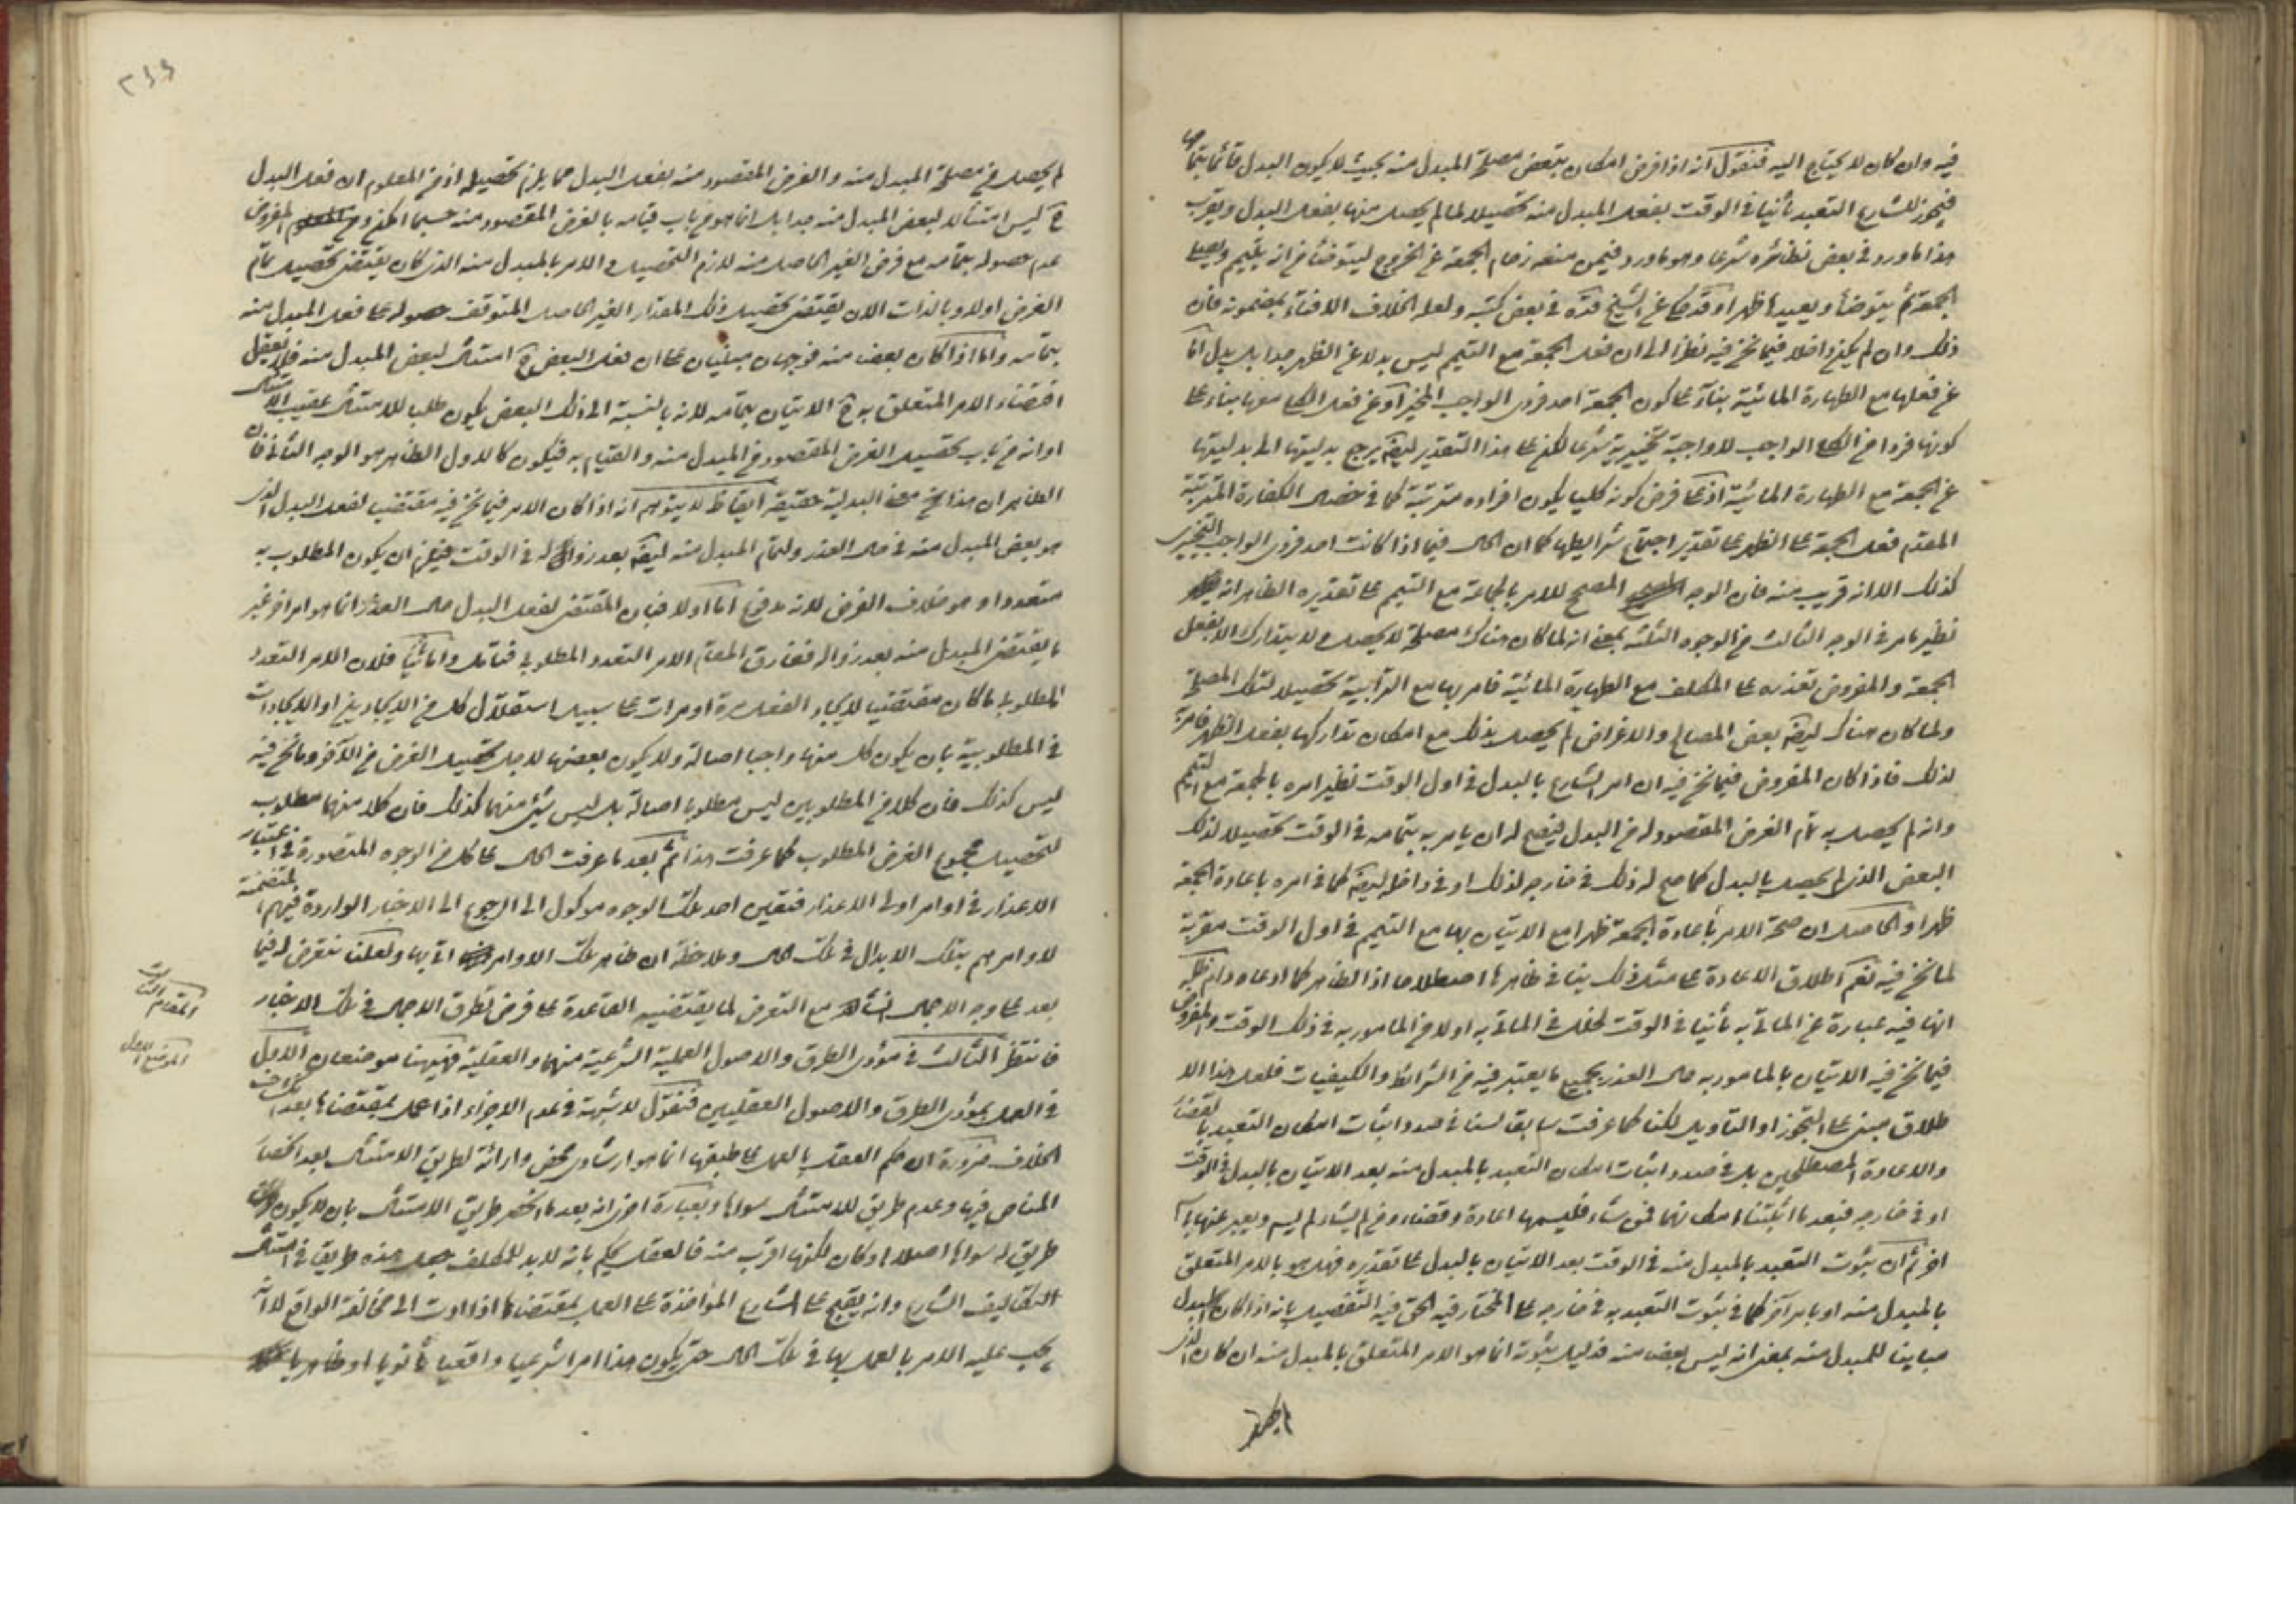 فيه وان كان لا يحتاج اليه فنقول انه اذا فرض امكان تبعض مصلحة المبدل منه بحيث لا يكون البدل قائما بتمامها
فيجوز للشارع التعبد ثانيا في الوقت بفعل المبدل منه تحصيلا لما لم يحصل منها بفعل البدل ويقرب
هذا ما ورد في بعض نظائره شرعا وهو ما ورد فيمن منعه زحام الجمعة عن الخروج ليتوضأ من انه يتيمم ويصلي
الجمعة ثم يتوضأ ويعيدها ظهرا وقد حكي عن الشيخ قده في بعض كتبه ولعله الخلاف الافتاء بمضمونه فان
ذلك وان لم يكن داخلا فيما نحن فيه نظرا الى ان فعل الجمعة مع التيمم ليس بدلا عن الظهر جدا بل بدل اما
عن فعلها مع الطهارة المائية بناء على كون الجمعة احد فردي الواجب المخير او عن فعل الكلي معها بناء على
كونها فردا من الكلي الواجب لا واجبة تخييرية شرعا لكن على هذا التقدير ايضا يرجع بدليتها الى بدليتها
عن الجمعة مع الطهارة المائية اذ على فرض كونه كليا يكون افراده مترتبة كما في خصال الكفارة المترتبة
المقدم فعل الجمعة على الظهر على تقدير اجتماع شرايطها كما ان الحال فيما اذا كانت احد فردي الواجب التخييري
كذلك الا انه قريب منه فان الوجه المصحح للامر بالجماعة مع التيمم على تقديره الظاهر انه
نظير ما مر في الوجه الثالث من الوجوه الثلثة بمعنى انه لما كان هناك مصلحة لا يحصل ولا يتدارك الا بفعل
الجمعة والمفروض تعذره على المكلف مع الطهارة المائية فامر بها مع الترابية تحصيلا لتلك المصلحة
ولما كان هناك ايضا بعض المصالح والاغراض لم يحصل بذلك مع امكان تداركها بفعل الظهر فامر
لذلك فاذا كان المفروض فيما نحن فيه ان امر الشارع بالبدل في اول الوقت نظير امره بالجمعة مع التيمم
وانه لم يحصل به تمام الغرض المقصود له من البدل فيصح له ان يامر به بتمامه في الوقت تحصيلا لذلك
البعض الذي لم يحصل بالبدل كما صح له ذلك في خارجه لذلك او في داخله ايضا كما في امره باعادة الجمعة
ظهرا والحاصل ان صحة الامر باعادة الجمعة ظهرا مع الاتيان بها مع التيمم في اول الوقت مقربة
لما نحن فيه نعم اطلاق الاعادة على مثل ذلك ينافي ظاهرها اصطلاحا اذ الظاهر كما ادعاه
انها فيه عبارة عن الماتي به ثانيا في الوقت لخلل في الماتي به اولا من المامور به في ذلك الوقت والمفروض
فيما نحن فيه الاتيان بالمامور به حال العذر بجميع ما يعتبر فيه من الشرائط والكيفيات فلعل هذا الا
طلاق مبني على التجوز او التاويل لكنا كما عرفت سابقا لسنا في صدد اثبات امكان التعبد بالقضاء
والاعادة المصطلحين بل في صدد اثبات امكان التعبد بالمبدل منه بعد الاتيان بالبدل في الوقت
او في خارجه فبعد ما اثبتنا امكانهما فمن شاء فليسمها اعادة وقضاء ومن لم يشاء لم يسم ويعبر عنها بما
اخر ثم ان ثبوت التعبد بالمبدل منه في الوقت بعد الاتيان بالبدل على تقديره فهل هو بالامر المتعلق
بالمبدل منه او بامر آخر كما في ثبوت التعبد به في خارجه على المختار فيه الحق فيه التفصيل بانه اذا كان البدل
مباينا للمبدل منه بمعنى انه ليس بعضا منه فدليل ثبوته انما هو الامر المتعلق بالمبدل منه ان كان الذي
لم يحصل
لم يحصل من مصلحة المبدل منه والغرض المقصود منه بفعل البدل مما يلزم تحصيله اذ من المعلوم ان فعل البدل
ح ليس امتثالا لبعض المبدل منه جدا بل انما هو من باب قيامه بالغرض المقصود منه حسبما امكن ومع المفروض
عدم حصوله بتمامه مع فرض الغير الحاصل منه لازم التحصيل والامر بالمبدل منه الذي كان يقتضي تحصيل تمام
الغرض اولا وبالذات الان يقتضي تحصيل ذلك المقدار الغير الحاصل المتوقف حصوله على فعل المبدل منه
بتمامه واما اذا كان بعضا منه فوجهان مبنيان على ان فعل البعض ح امتثال لبعض المبدل منه فلا يعقل
اقتضاء الامر المتعلق به ح الاتيان بتمامه لانه بالنسبة الى ذلك البعض يكون طلب للامتثال عقيب الامتثال
او انه من باب تحصيل الغرض المقصود من المبدل منه والقيام به فيكون كالاول الظاهر هو الوجه الثاني فان
الظاهر ان هذا نحو معنى البدلية حقيقة ايقاظ لا يتوهم انه اذا كان الامر فيما نحن فيه مقتضيا لفعل البدل الذي
هو بعض المبدل منه في حال العذر ولتمام المبدل منه ايضا بعد زواله في الوقت فيلزم ان يكون المطلوب به
متعددا وهو خلاف الفرض لانه مدفوع اما اولا فبان المقتضي لفعل البدل حال العذر انما هو امر اخر غير
ما يقتضي المبدل منه بعد زواله ففارق المقام الامر المتعدد المطلوب فتامل واما ثانيا فلان الامر المتعدد
المطلوب ما كان مقتضيا لايجاد الفعل مرة او مرات على سبيل استقلال كل من الايجادين او الايجادات
في المطلوبية بان يكون كل منها واجبا اصالة ولا يكون بعضها لاجل تحصيل الغرض من الآخر وما نحن فيه
ليس كذلك فان كلا من المطلوبين ليس مطلوبا اصالة بل ليس شيء منهما كذلك فان كلا منهما مطلوب
لتحصيل مجموع الغرض المطلوب كما عرفت هذا ثم بعد ما عرفت الحال على كل من الوجوه المتصورة في اعتبار
الاعذار في اوامر اولي الاعذار فتعيين احد تلك الوجوه موكول الى الرجوع الى الاخبار الواردة فيهم المتضمنة
لاوامرهم بتلك الابدال في تلك الحال وملاحظة ان ظاهر تلك الاوامر ايها ولعلنا نتعرض له فيما
بعد على وجه الاجمال انشاء الله مع التعرض لما يقتضيه القاعدة على فرض تطرق الاجمال في تلك الاخبار
فانتظر الثالث في مؤدى الطرق والاصول العملية الشرعية منهما والعقلية فهيهنا موضعان الاول
في العمل بمؤدى الطرق والاصول العقليين فنقول لا شبهة في عدم الاجزاء اذا عمل بمقتضاها بعد انكشاف
الخلاف ضرورة ان حكم العقل بالعمل على طبقها انما هو ارشادي محض وارائة لطريق الامتثال بعد انحصار
المناص فيها وعدم طريق للامتثال سواها وبعبارة اخرى انه بعد ما انحصر طريق الامتثال بان لا يكون
طريق له سواها اصلا او كان لكنها اقرب منه فالعقل يحكم بانه لا بد للمكلف جعل هذه طريقا في امتثال
التكاليف الشارع وانه يقبح على الشارع المؤاخذة على العمل بمقتضاها اذا ادت الى مخالفة الواقع لا انه
يجب عليه الامر بالعمل بها في تلك الحال حتى يكون هذا امرا شرعيا واقعيا ثانويا او ظاهريا
المقام الثالث
الموضع الاول